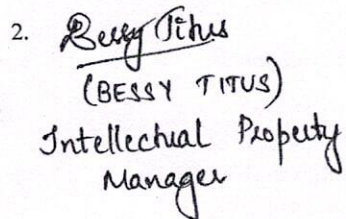 2. Bessy Titus
(BESSY TITUS)
Intellectual Property
Manager